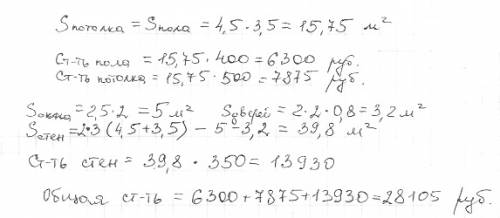 Sпотолка = Sпола = 4,5 · 3,5 = 15,75 м²
Ст-ть пола = 15,75 · 400 = 6300 руб.
Ст-ть потолка = 15,75 · 500 = 7875 руб.
Sокна = 2,5 · 2 = 5 м² Sдверей = 2 · 2 · 0,8 = 3,2 м²
Sстен = 2·3 (4,5 + 3,5) - 5 - 3,2 = 39,8 м²
Ст-ть стен = 39,8 · 350 = 13930
Общая ст-ть = 6300 + 7875 + 13930 = 28105 руб.